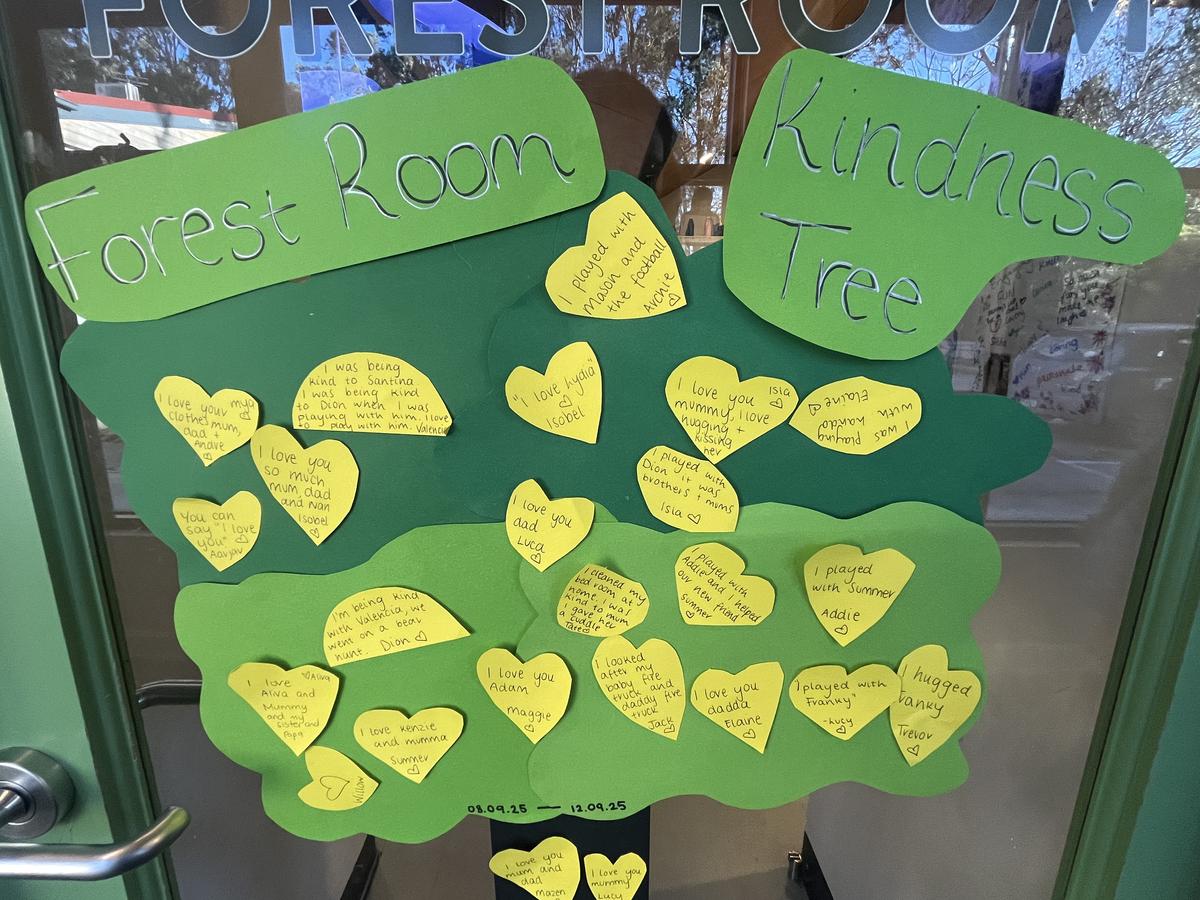 FOREST ROOM
Forest Room
Kindness
Tree
I played with
mason and
the football
Archie
I love your mya
clothes mum,
dad +
Andre
I was being
kind to Santina
I was being kind
to Dion when I was
playing with him. I love
to play with him. Valencia
"I love Lydia"
Isobel
I love you Isla
mummy, I love
hugging +
kissing
her
I was playing
with
Elaine
I love you
so much
mum, dad
and nan
Isobel
I played with
Dion it was
brothers + mums
Isla
You can
say "I love
you"
Aarjav
I love you
dad
Luca
I cleaned my
bed room at
home. I was
kind to mum
I gave her
a cuddle
Tate
I played with
Addie and I helped
our new friend
Summer
I played
with Summer
Addie
I'm being kind
with Valencia, we
went on a bear
hunt. Dion
I love Aliva
Aliva and
Mummy
and my
sister and
Papa
I love you
Adam
Maggie
I looked
after my
baby fire
truck and
daddy fire
truck
Jack
I love you
dadda
Elaine
"I played with
Franky"
-Lucy
I hugged
Trevor
I love kenzie
and mumma
Summer
Willow
08.09.25 — 12.09.25
I love you
mum and
dad
Mazen
I love you
mummy
Lucy